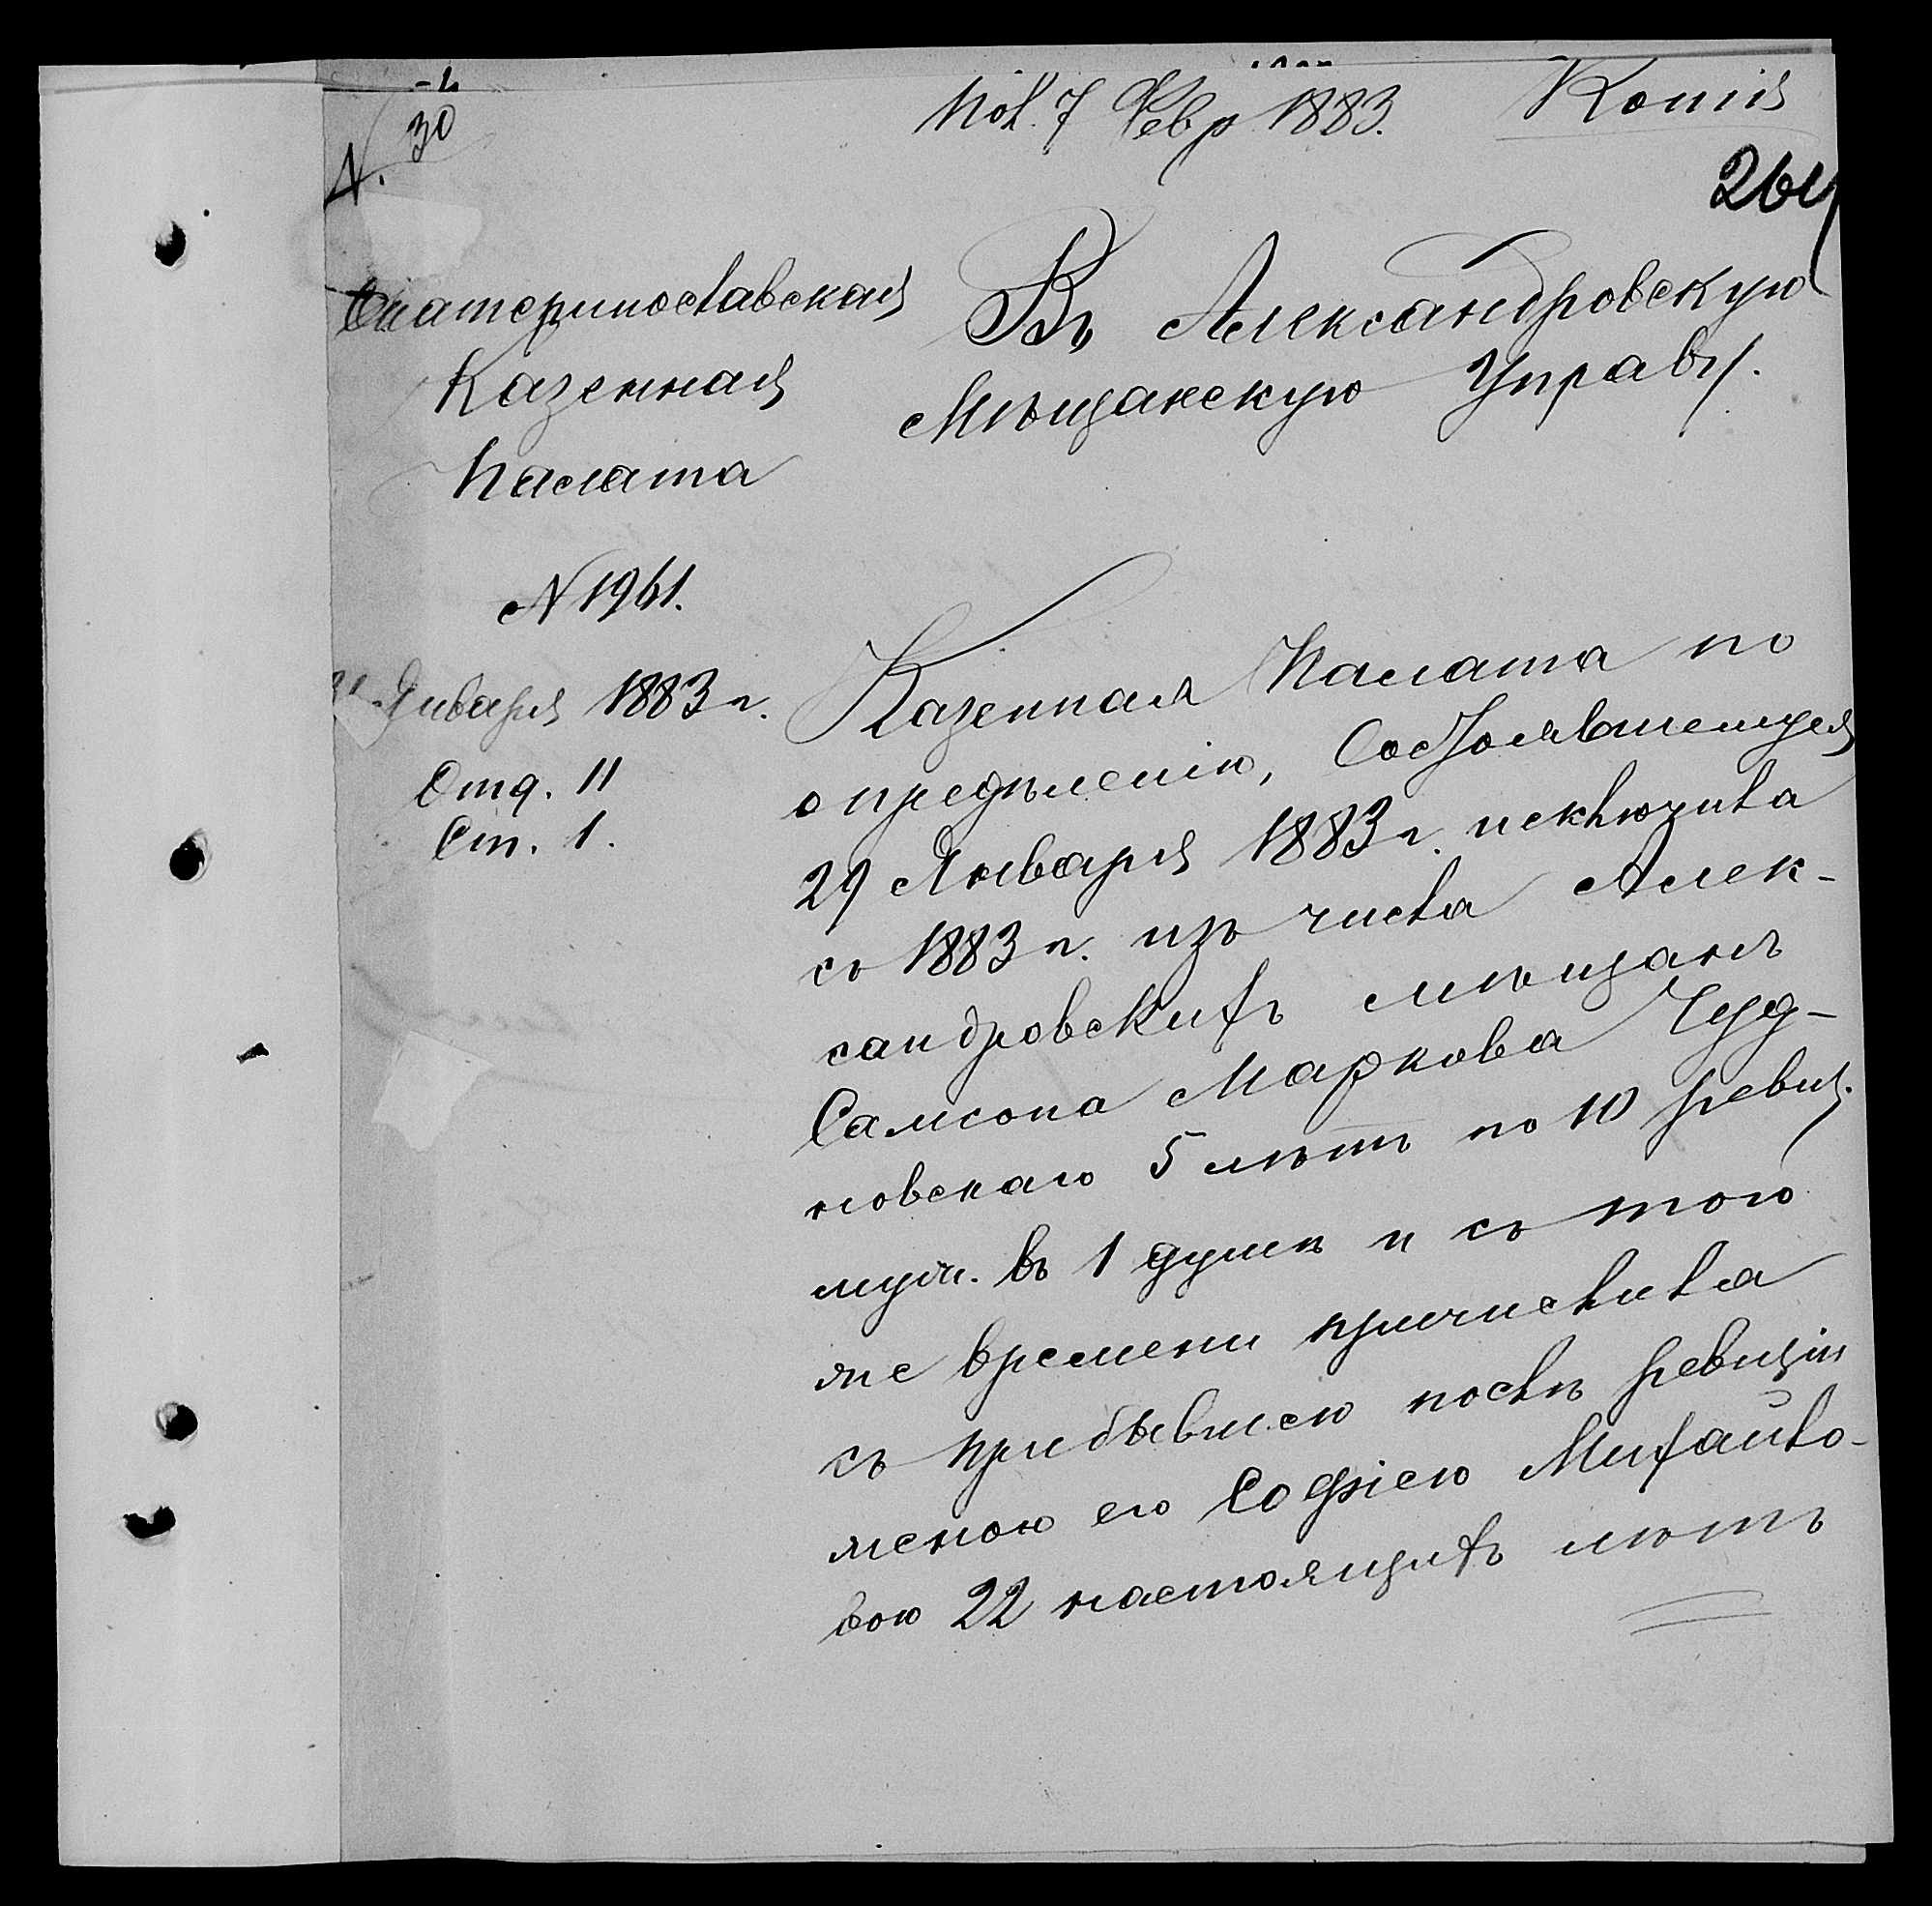 30
Пол. 7 Февр 1883. Копія
264
Екатеринославская
Казенная
Палата
N 1961.
31 Января 1883 г.
Отд. II
Ст. 1.
Въ Александровскую
Мѣщанскую Управу.
Казенная Палата по
опредѣленію, Состоявшемуся
29 Января 1883 г. исключила
съ 1883 г. изъ числа Алек-
сандровскихъ мѣщанъ
Самсона Маркова Чуд-
новскаго 5 лѣтъ по 10 ревиз.
муж. въ 1 душѣ и съ того
же времени причислила
съ прибывшею послѣ ревизіи
женою его Софіею Михайло-
вою 22 настоящихъ лѣтъ